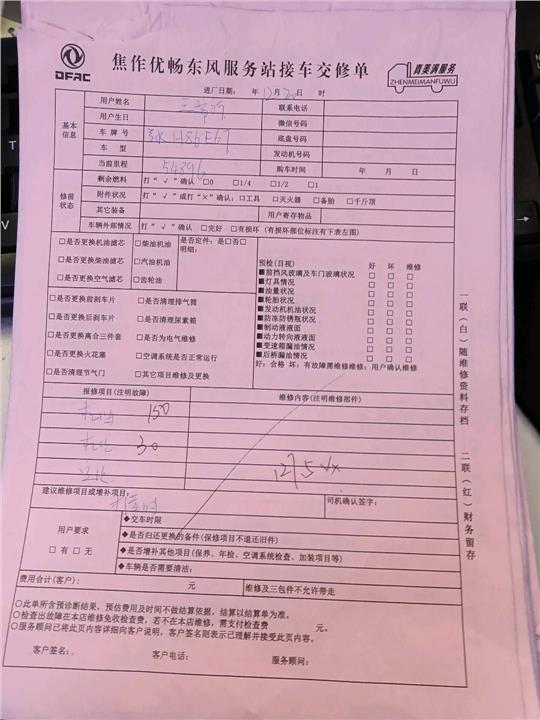 DFAC
焦作优畅东风服务站接车交修单
真美满服务
ZHENMEIMANFUWU
进厂日期: 年 12月20日 时
基本信息
用户姓名
联系电话
用户生日
微信号码
车牌号
底盘号码
车型
发动机号码
当前里程 54896
购车时间 年 月 日
修前状态
剩余燃料 打“√”确认 □0 □1/4 □1/2 □1
附件状况 打“√”或打“×”确认:□工具 □灭火器 □备胎 □千斤顶
其它装备 用户寄存物品
车辆外部情况 打“√”确认 □完好 □有损坏(有损坏部位标注有下表左图)
□是否更换机油滤芯 □柴油机油 是否定件: 是□否□
□是否更换柴油滤芯 □汽油机油 明细:
□是否更换空气滤芯 □齿轮油
□是否更换前刹车片 □是否清理排气筒
□是否更换后刹车片 □是否清理尿素箱
□是否更换离合三件套 □是否为电气维修
□是否更换火花塞 □空调系统是否正常运行
□是否清理节气门 □其它项目维修及更换
预检(目视) 好 坏 维修
■前挡风玻璃及车门玻璃状况 □ □ □
■灯具情况 □ □ □
■油量状况 □ □ □
■轮胎状况 □ □ □
■发动机机油状况 □ □ □
■防冻防锈瓶状况 □ □ □
■制动液液面 □ □ □
■动力转向液液面 □ □ □
■变速箱漏油情况 □ □ □
■后桥漏油情况 □ □ □
好:合格 坏:有故障需维修维修:用户确认维修
报修项目(注明故障) 维修内容(注明维修部件)
150
30
建议维修项目或增补项目:
司机确认签字:
用户要求
□有 □无
◆交车时限
◆是否归还更换的备件(保修项目不退还旧件)
◆是否增补其他项目(保养、年检、空调系统检查、加装项目等)
◆车辆是否需要清洁:
费用合计(客户): 元 维修及三包件不允许带走
○此单所含预诊断结果,预估费用及时间不做结算依据,结算以结算单为准。
○检查出故障在本店维修免收检查费,若不在本店维修,需支付检查费 元。
○服务顾问已将此页内容详细向客户说明,客户签名则表示已理解并接受此页内容。
客户签名: 客户电话: 服务顾问:
一联(白)随维修资料存档 二联(红)财务留存